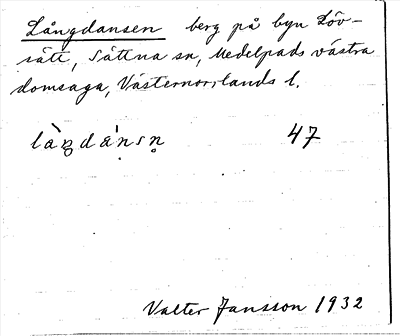 Långdansen berg på byn Löv-
sätt, Sättna sn, Medelpads västra
domsaga, Västernorrlands l.
làŋdán̥sn̥ 47
Valter Jansson 1932